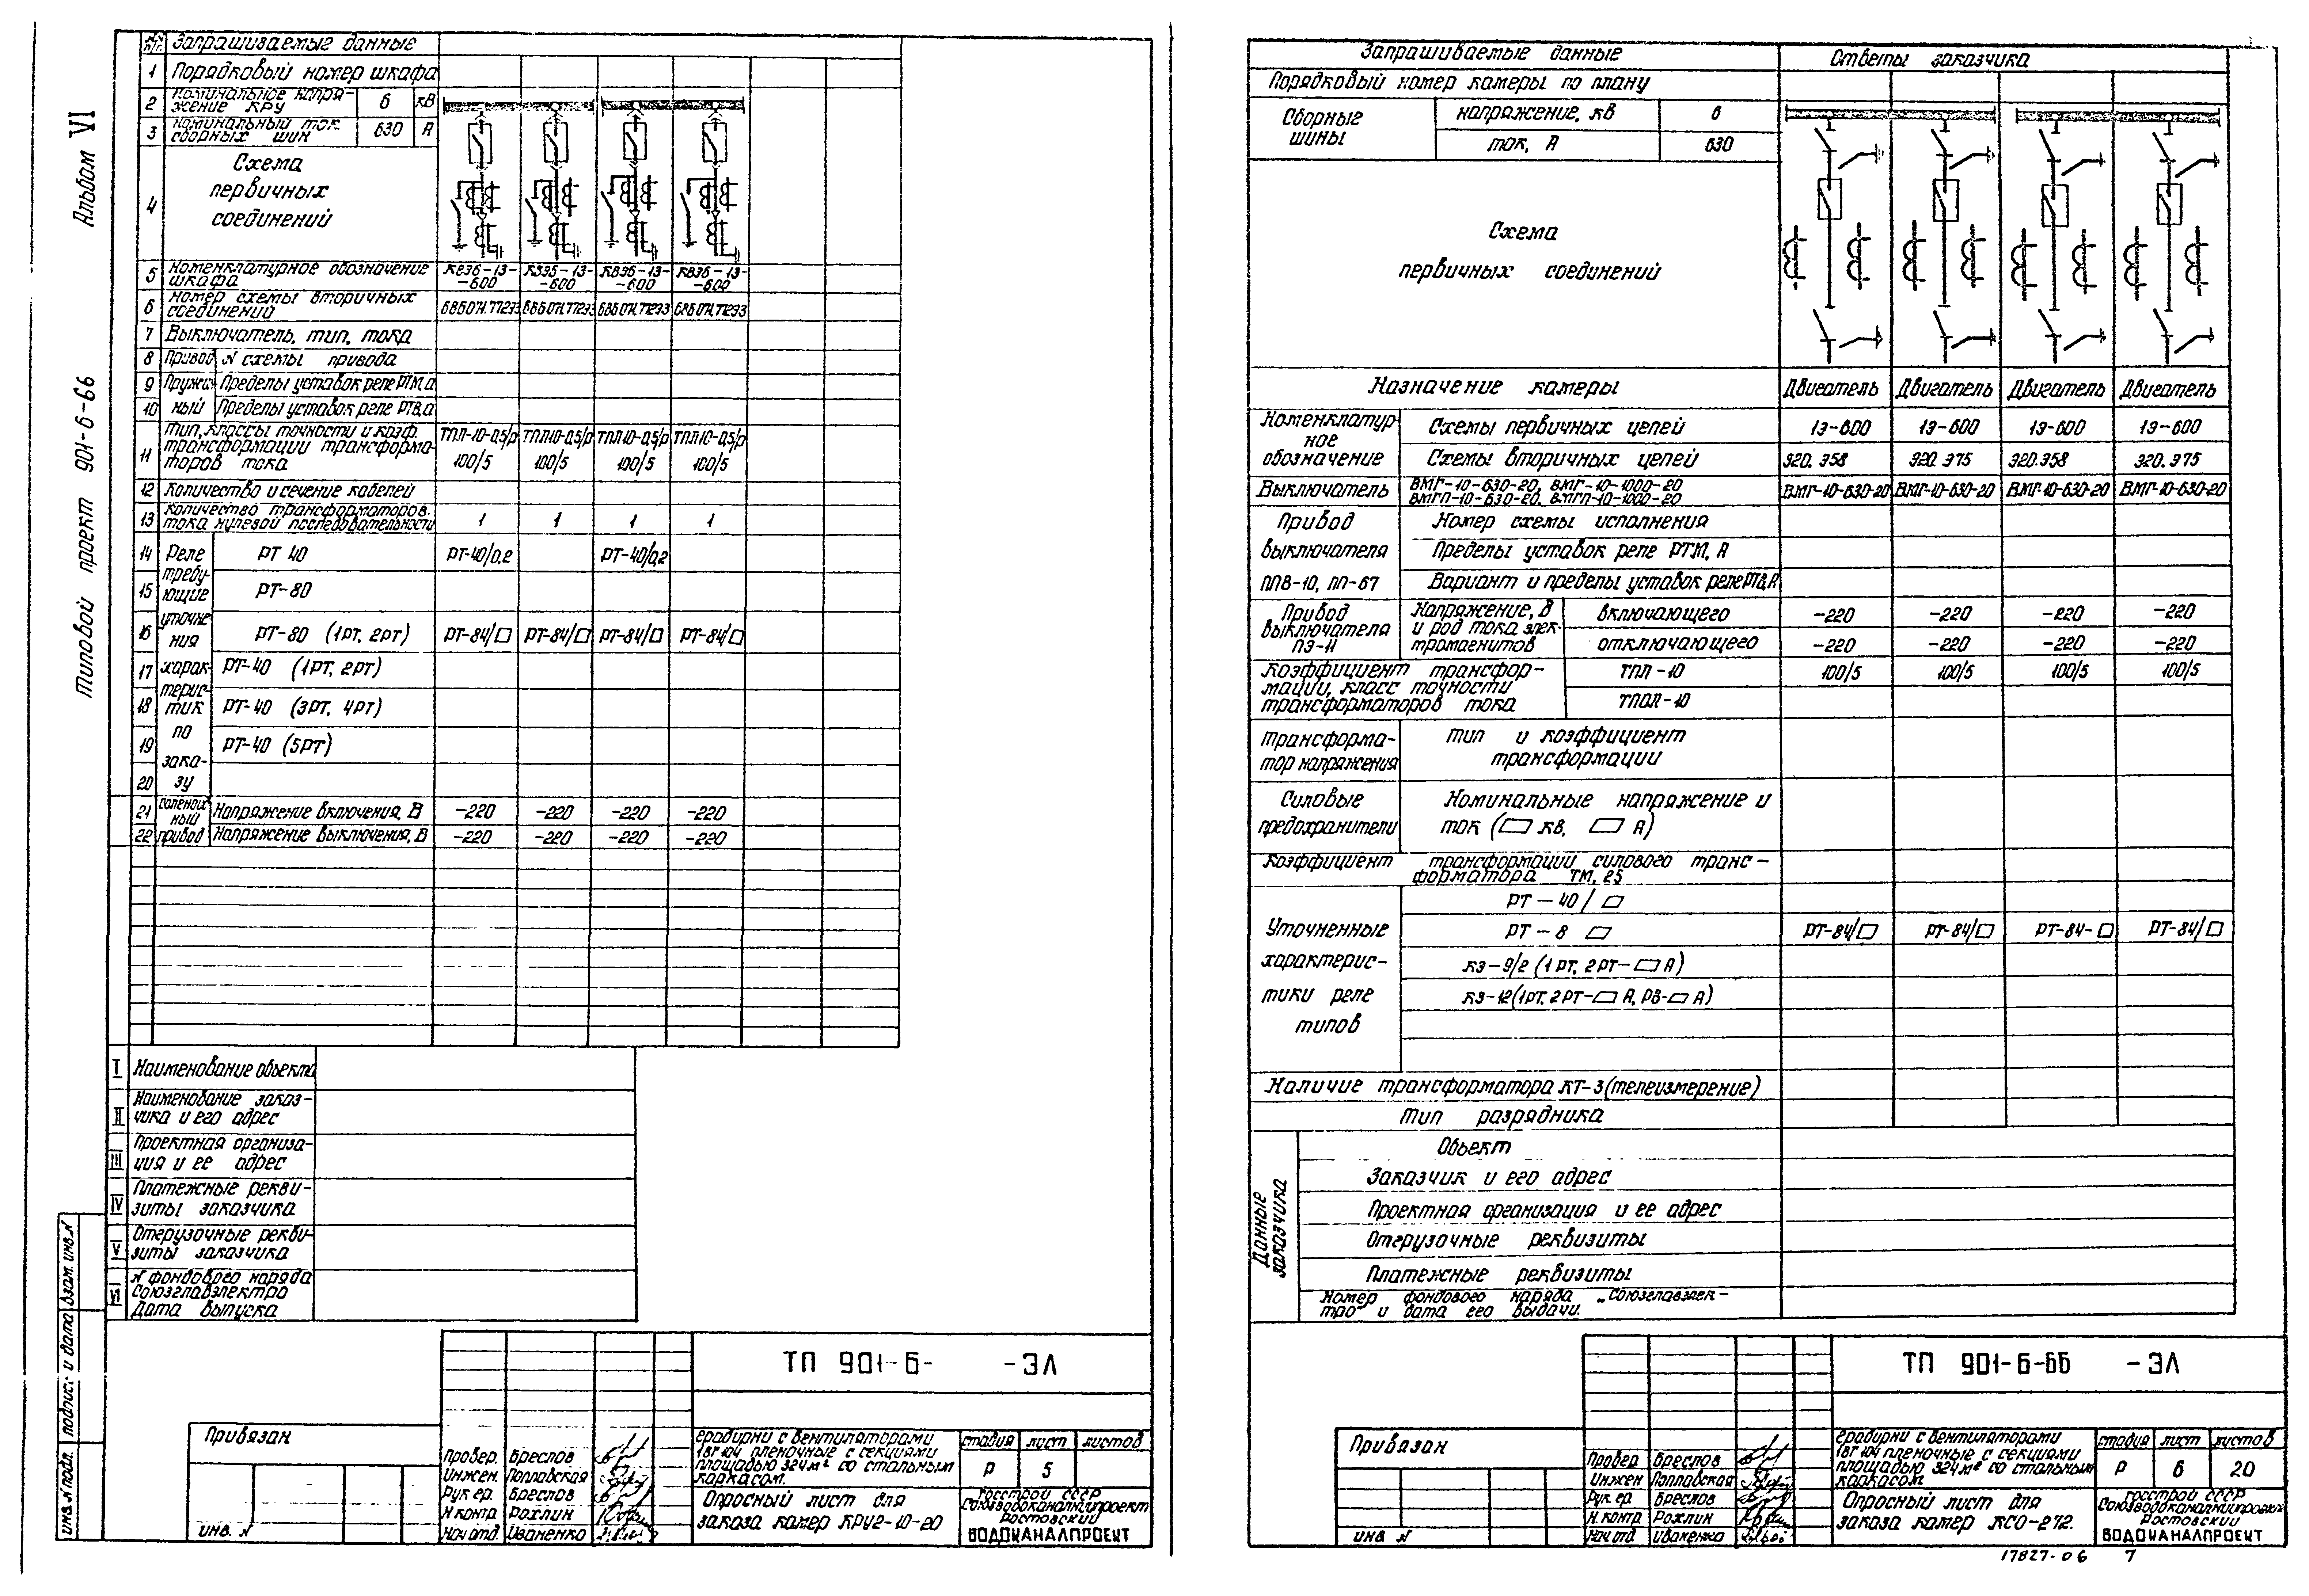 Альбом VI
Типовой проект 901-6-66
Запрашиваемые данные
1 Порядковый номер шкафа
2 Номинальное напря-
жение КРУ 6 кВ
3 Номинальный ток
сборных шин 630 А
4 Схема
первичных
соединений
5 Номенклатурное обозначение
шкафа
КВЭ6-13- КВЭ6-13- КВЭ6-13- КВЭ6-13-
-600 -600 -600 -600
6 Номер схемы вторичных
соединений
7 Выключатель, тип, тока
8 Привод N схемы привода
9 Пружин Пределы уставок реле РТМ, а
10 ный Пределы уставок реле РТВ, а
11 Тип, классы точности и коэф.
трансформации трансформа-
торов тока
ТПЛ-10-0,5/Р ТПЛ10-0,5/Р ТПЛ10-0,5/Р ТПЛ10-0,5/Р
100/5 100/5 100/5 100/5
12 Количество и сечение кабелей
13 Количество трансформаторов
тока нулевой последовательности 1 1 1 1
Реле
требу-
ющие
уточне
ния
харак-
терис-
тик
по
зака-
зу
14 РТ 40 РТ-40/0,2 РТ-40/0,2
15 РТ-80
16 РТ-80 (1РТ, 2РТ) РТ-84/▱ РТ-84/▱ РТ-84/▱ РТ-84/▱
17 РТ-40 (1РТ, 2РТ)
18 РТ-40 (3РТ, 4РТ)
19 РТ-40 (5РТ)
20
соленоид
ный
привод
21 Напряжение включения, В -220 -220 -220 -220
22 Напряжение выключения, В -220 -220 -220 -220
I Наименование объекта
II Наименование заказ-
чика и его адрес
III Проектная организа-
ция и ее адрес
IV Платежные рекви-
зиты заказчика
V Отгрузочные рекви-
зиты заказчика
VI N фондового наряда
Союзглавэлектро
Дата выпуска
инв. N подл. подпис. и дата взам. инв. N
Привязан
инв. N
Провер. Бреслов
Инжен. Поплавская
Рук гр. Бреслов
Н контр. Рохлин
Нач отд. Иваненко
ТП 901-6- -ЭЛ
градирни с вентиляторами
1ВГ 104 пленочные с секциями
площадью 324м² со стальным
каркасом.
стадия лист листов
Р 5
Опросный лист для
заказа камер КРУ2-10-20
госстрой СССР
Союзводоканалпроект
Ростовский
ВОДОКАНАЛПРОЕКТ
Запрашиваемые данные Ответы заказчика
Порядковый номер камеры по плану
Сборные
шины
напряжение, кв 6
ток, А 630
Схема
первичных соединений
Назначение камеры Двигатель Двигатель Двигатель Двигатель
Номенклатур
ное
обозначение
Схемы первичных цепей 1Э-600 1Э-600 1Э-600 1Э-600
Схемы вторичных цепей 320.358 320.375 320.358 320.375
Выключатель ВМГ-10-630-20, ВМГ-10-1000-20
ВМГП-10-630-20, ВМГП-10-1000-20
ВМГ-10-630-20 ВМГ-10-630-20 ВМГ-10-630-20 ВМГ-10-630-20
Привод
выключателя
ППВ-10, ПП-67
Номер схемы исполнения
Пределы уставок реле РТМ, А
Вариант и пределы уставок реле РТВ, А
Привод
выключателя
ПЭ-11
Напряжение, В
и род тока элек-
тромагнитов
включающего -220 -220 -220 -220
отключающего -220 -220 -220 -220
Коэффициент трансфор-
мации, класс точности
трансформаторов тока
ТПЛ-10 100/5 100/5 100/5 100/5
ТПОЛ-10
Трансформа-
тор напряжения
тип и коэффициент
трансформации
Силовые
предохранители
Номинальные напряжение и
ток (▱ кв, ▱ А)
Коэффициент трансформации силового транс-
форматора ТМ, 25
Уточненные
характерис-
тики реле
типов
РТ-40/▱
РТ-8▱ РТ-84/▱ РТ-84/▱ РТ-84-▱ РТ-84/▱
КЭ-9/2 (1РТ, 2РТ-▱А)
КЭ-12(1РТ, 2РТ-▱А, РВ-▱А)
Наличие трансформатора КТ-3 (телеизмерение)
Тип разрядника
Данные
заказчика
Объект
Заказчик и его адрес
Проектная организация и ее адрес
Отгрузочные реквизиты
Платежные реквизиты
Номер фондового наряда „Союзглавэлек-
тро" и дата его выдачи.
Привязан
инв N
Провер Бреслов
Инжен Поплавская
Рук гр. Бреслов
Н. контр Рохлин
Нач отд. Иваненко
ТП 901-6-66 -ЭЛ
градирни с вентиляторами
1ВГ 104 пленочные с секциями
площадью 324м² со стальным
каркасом.
стадия лист листов
Р 6 20
Опросный лист для
заказа камер КСО-272.
госстрой СССР
Ростовский
ВОДОКАНАЛПРОЕКТ
17827-06 7